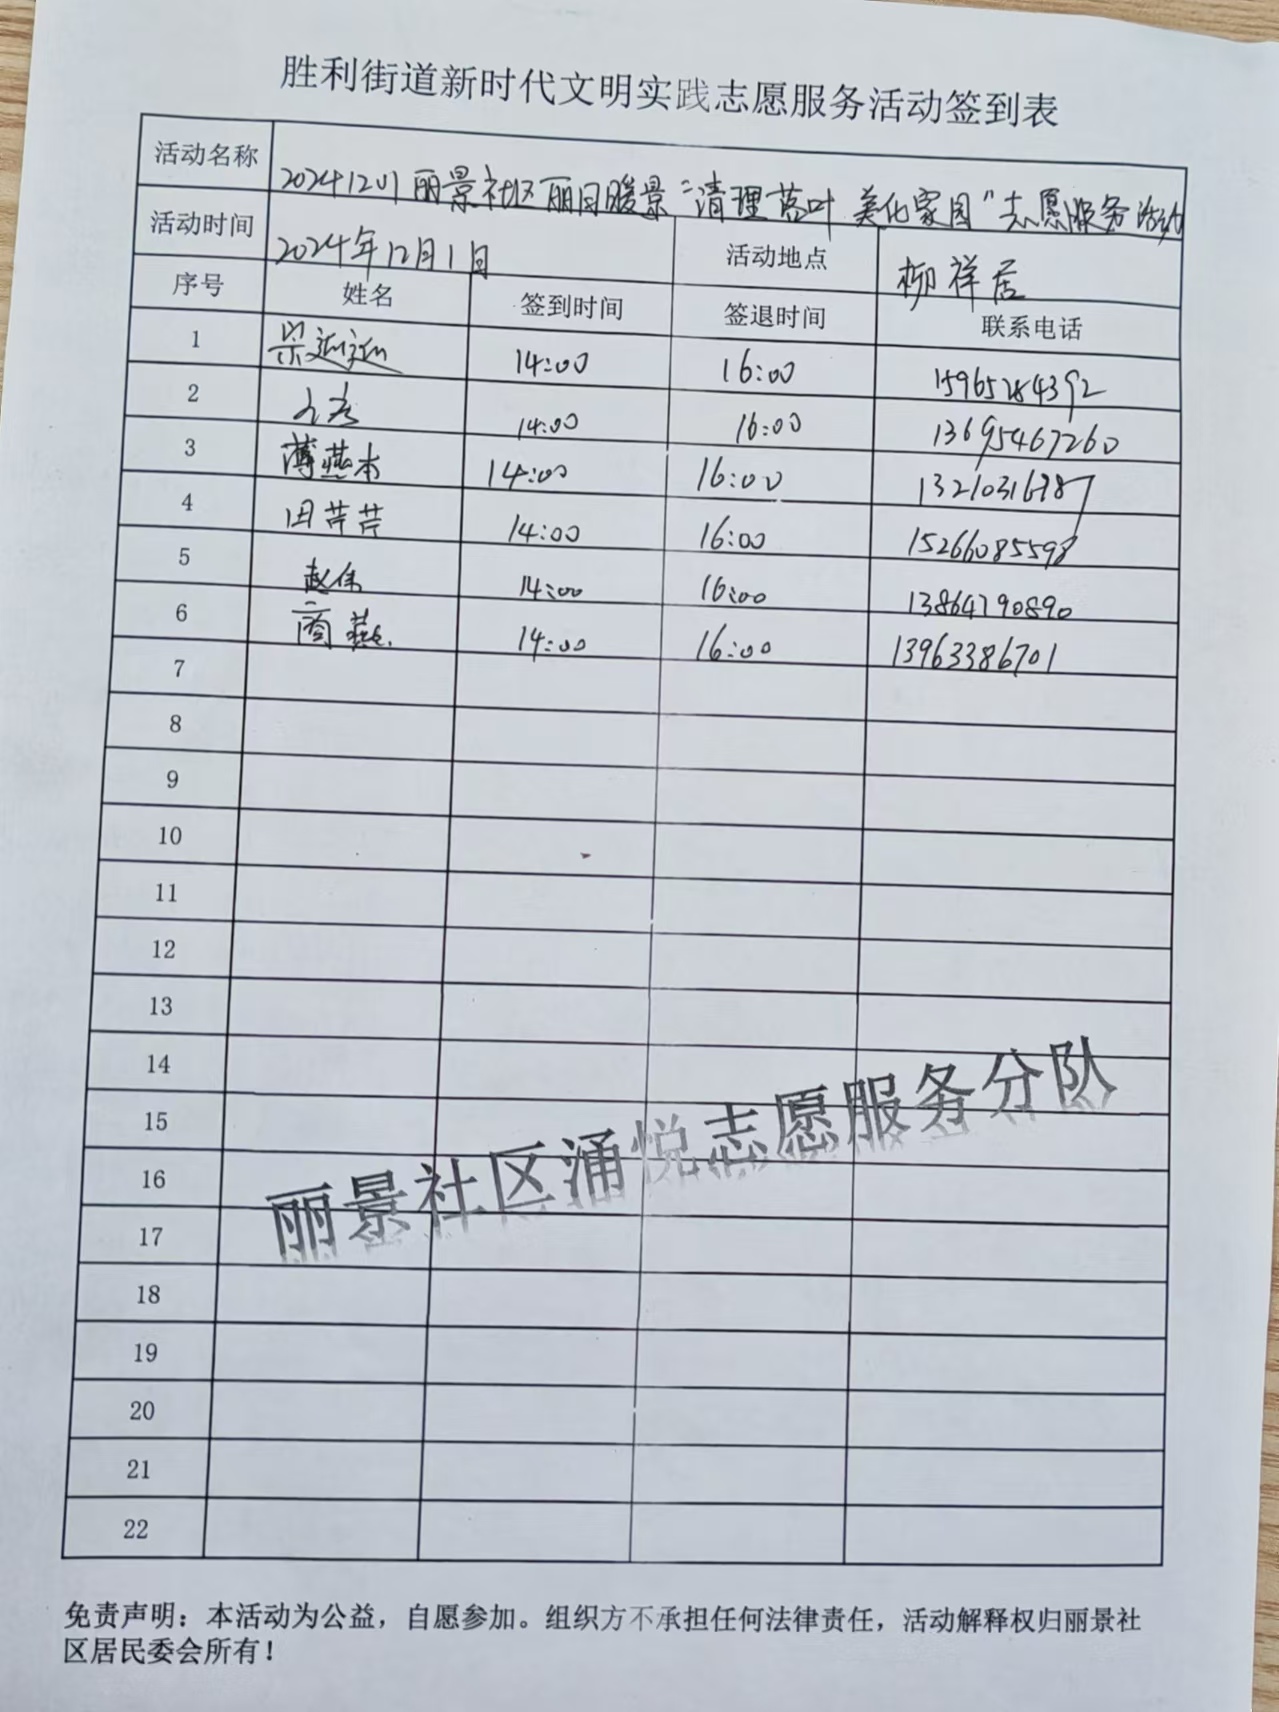 胜利街道新时代文明实践志愿服务活动签到表
活动名称 20241201丽景社区丽日暖景“清理落叶 美化家园”志愿服务活动
活动时间 2024年12月1日 活动地点 柳祥居
序号 姓名 签到时间 签退时间 联系电话
1 14:00 16:00 15965284392
2 14:00 16:00 13695467260
3 薄燕本 14:00 16:00
4 田芹芹 14:00 16:00 15266085598
5 赵伟 14:00 16:00 13864790890
6 商燕 14:00 16:00 13963386701
7
8
9
10
11
12
13
14
15
16
17
18
19
20
21
22
丽景社区涌悦志愿服务分队
免责声明：本活动为公益，自愿参加。组织方不承担任何法律责任，活动解释权归丽景社
区居民委会所有！